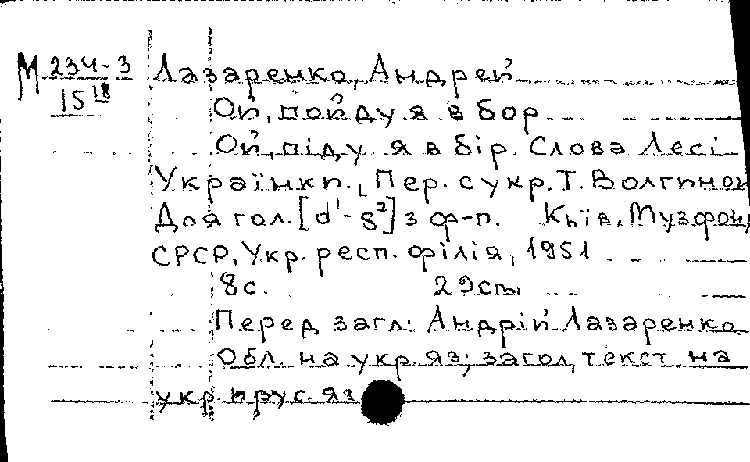 М 234-3
15 18
Лазаренко, Андрей
Ой, пойду я в бор
Ой, піду я в бір. Слова Лесі
Українки., Пер. с укр. Т. Волгиной
Для гол. [d¹-g²] з ф-п. Київ, Музфонд
СРСР, Укр. респ. філія, 1951
8с. 29см
Перед загл: Андрій Лазаренко
Обл. на укр. яз; загол, текст на
укр. и рус. яз